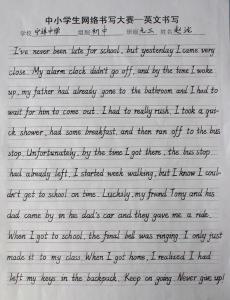 中小学生网络书写大赛—英文书写
学校 中学 组别 初中 班级 姓名 赵
I've never been late for school, but yesterday I came very
close. My alarm clock didn't go off, and by the time I woke
up, my father had already gone to the bathroom and I had to
wait for him to come out. I had to really rush. I took a qui-
ck shower, had some breakfast, and then ran off to the bus
stop. Unfortunately, by the time I got there, the bus stop
had already left. I started week walking, but I know I coul-
dn't get to school on time. Luckily, my friend Tony and his
dad came by in his dad's car and they gave me a ride.
When I got to school, the final bell was ringing. I only just
made it to my class. When I got home, I realized I had
left my keys in the backpack. Keep on going. Never give up!